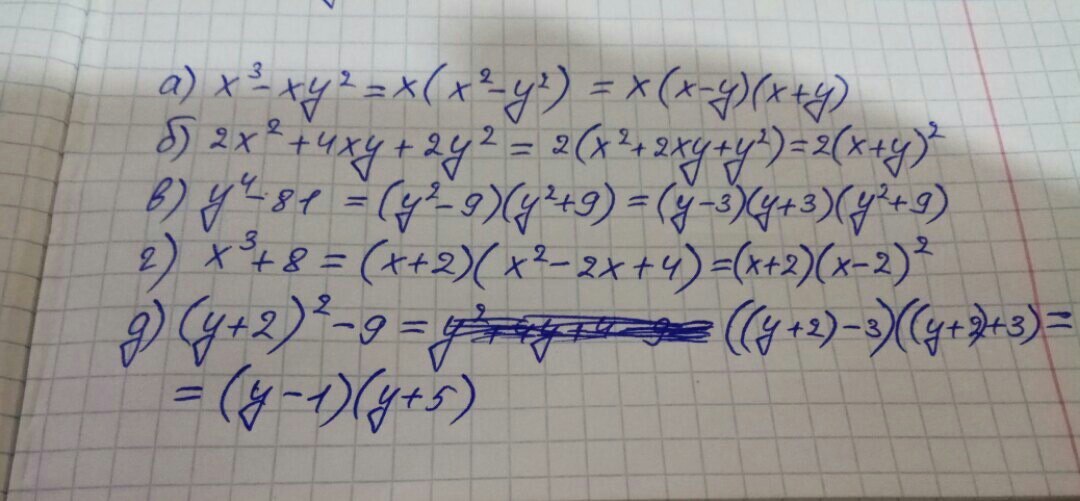 а) x³-xy² = x(x²-y²) = x(x-y)(x+y)
б) 2x²+4xy+2y² = 2(x²+2xy+y²)=2(x+y)²
в) y⁴-81 = (y²-9)(y²+9) = (y-3)(y+3)(y²+9)
г) x³+8 = (x+2)(x²-2x+4)=(x+2)(x-2)²
д) (y+2)²-9 = y²+4y+4-9 ((y+2)-3)((y+2)+3) =
= (y-1)(y+5)